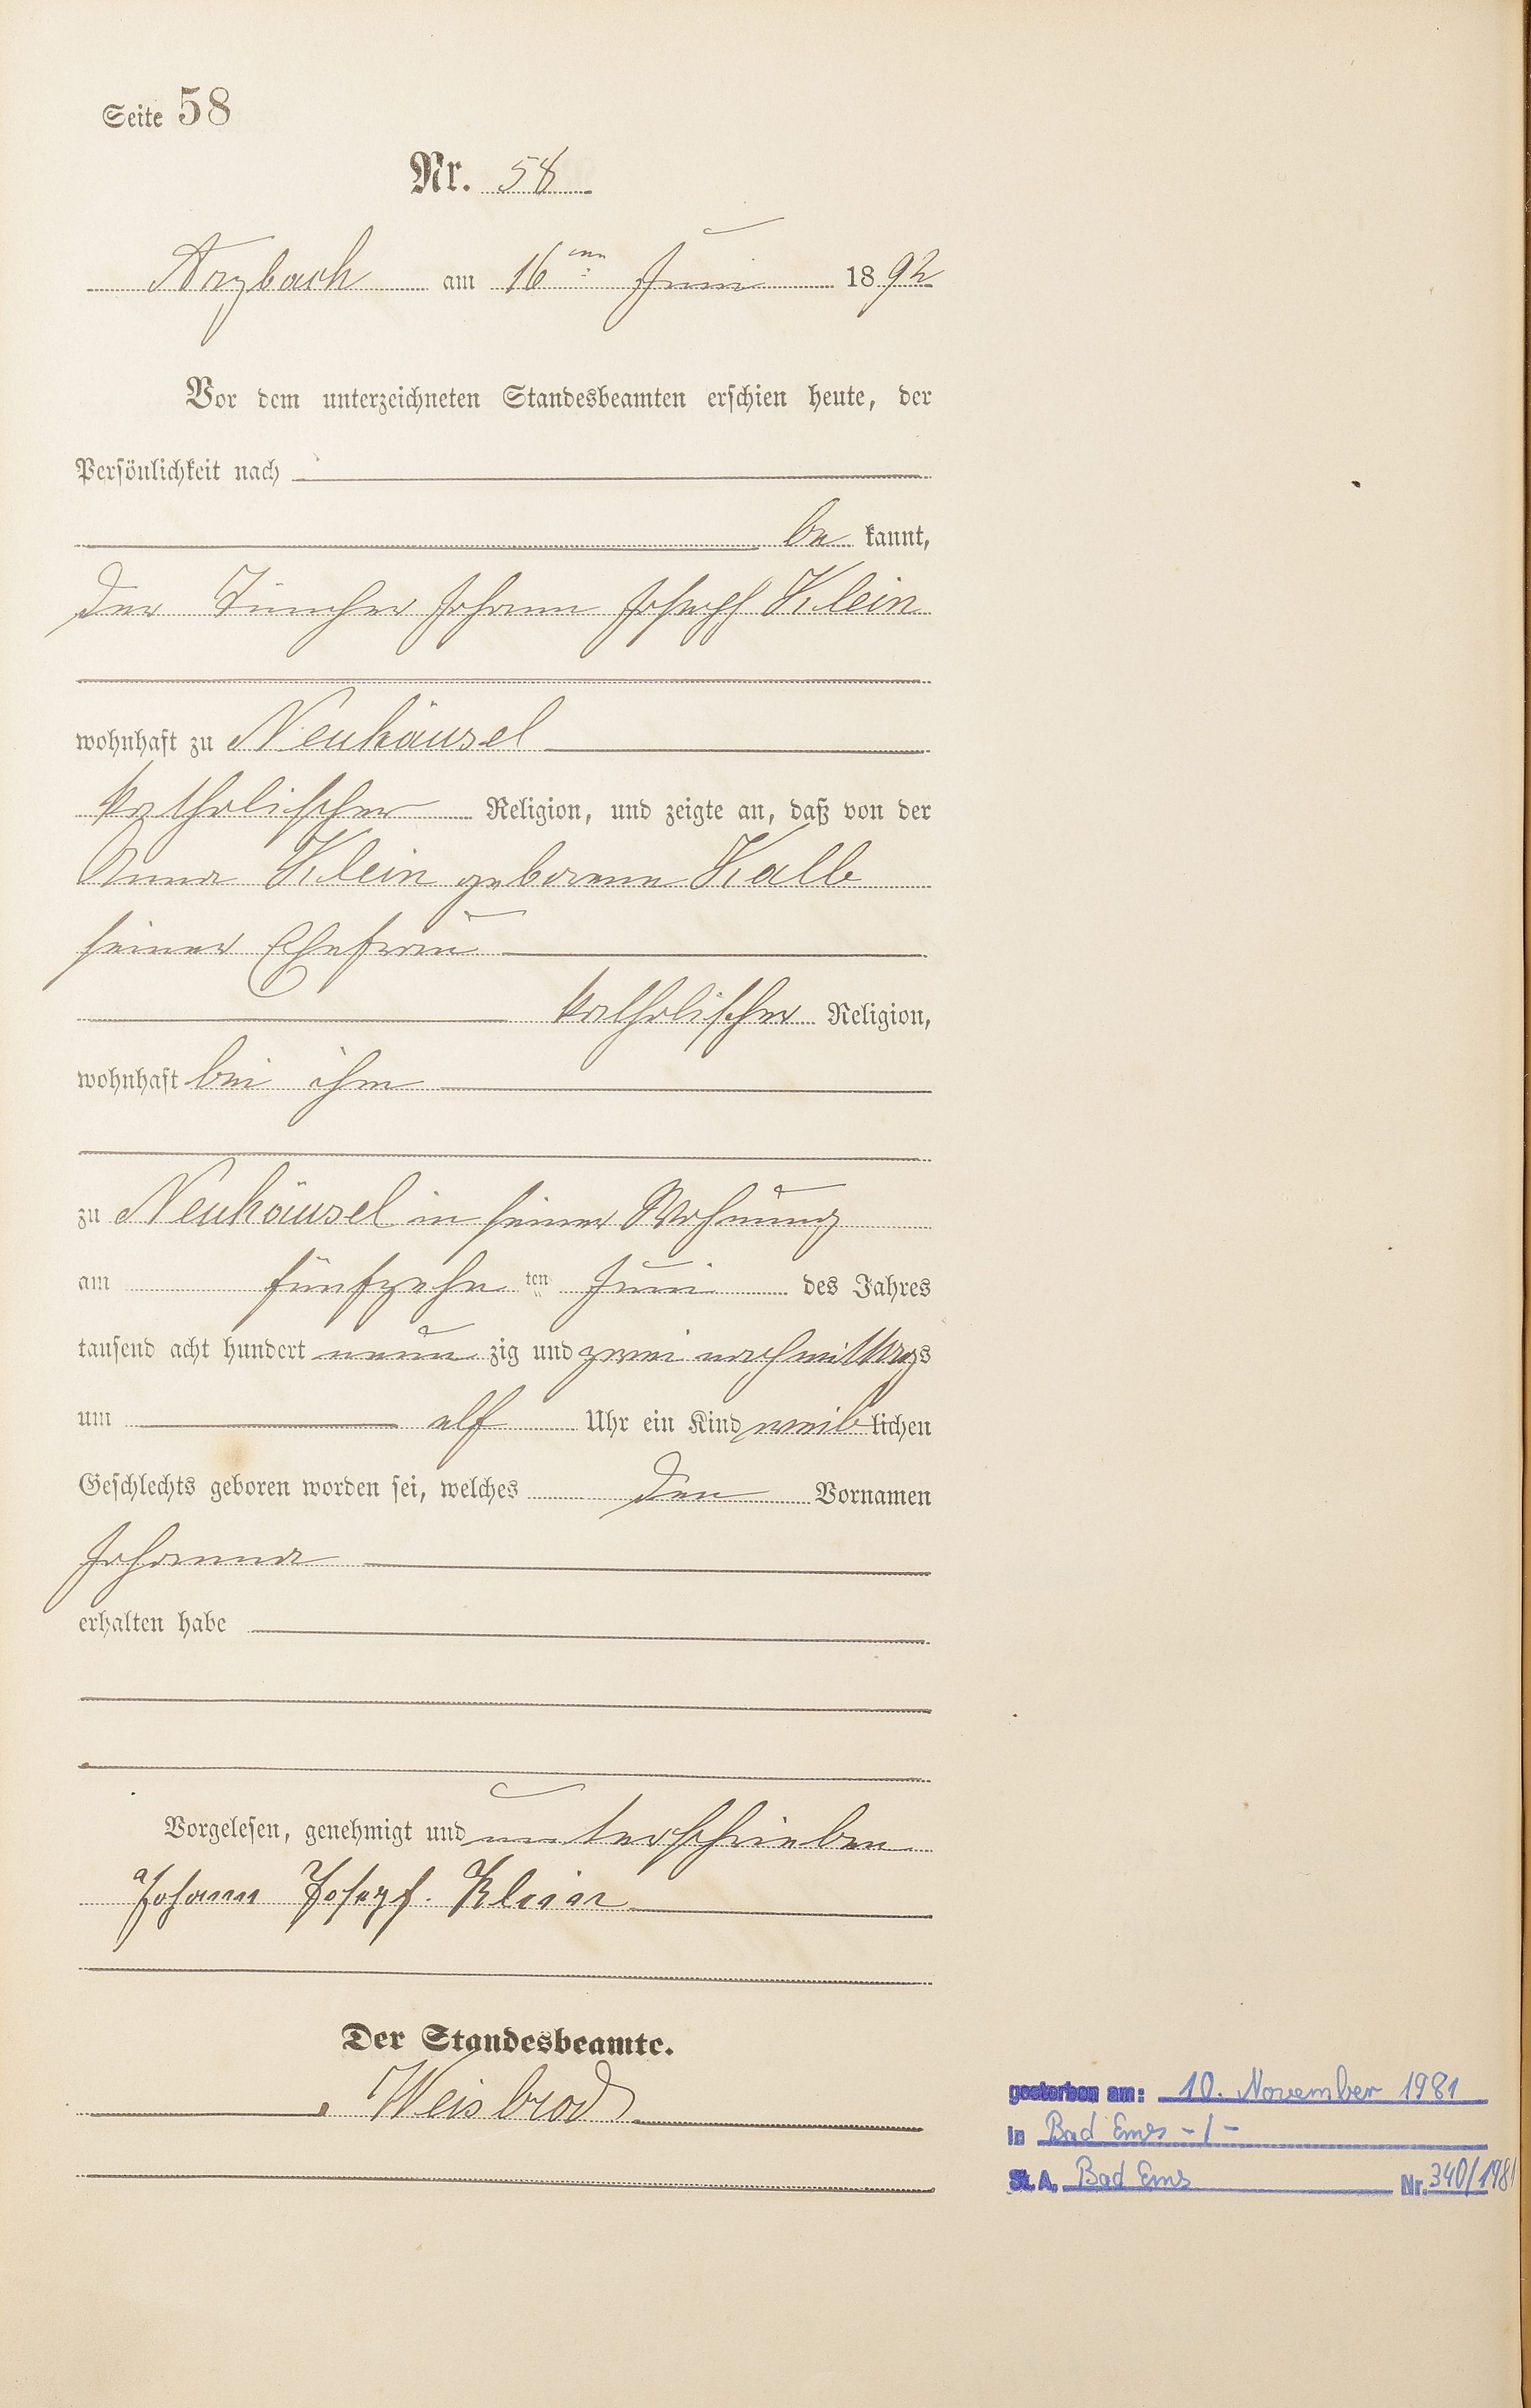 Seite 58
Nr. 58
Arzbach am 16ten Juni 1892
Vor dem unterzeichneten Standesbeamten erschien heute, der
Persönlichkeit nach
be kannt,
der Tüncher Johann Joseph Klein
wohnhaft zu Neuhäusel
katholischer Religion, und zeigte an, daß von der
Anna Klein geborene Kalb
seiner Ehefrau
katholischer Religion,
wohnhaft bei ihm
zu Neuhäusel in seiner Wohnung
am fünfzehn ten Juni des Jahres
tausend acht hundert neun zig und zwei nachmittags
um elf Uhr ein Kind weiblichen
Geschlechts geboren worden sei, welches den Vornamen
Johanna
erhalten habe
Vorgelesen, genehmigt und unterschrieben
Johann Josepf. Klein
Der Standesbeamte.
Weisbrod
gestorben am: 10. November 1981
in Bad Ems -/-
St. A. Bad Ems Nr. 340/1981